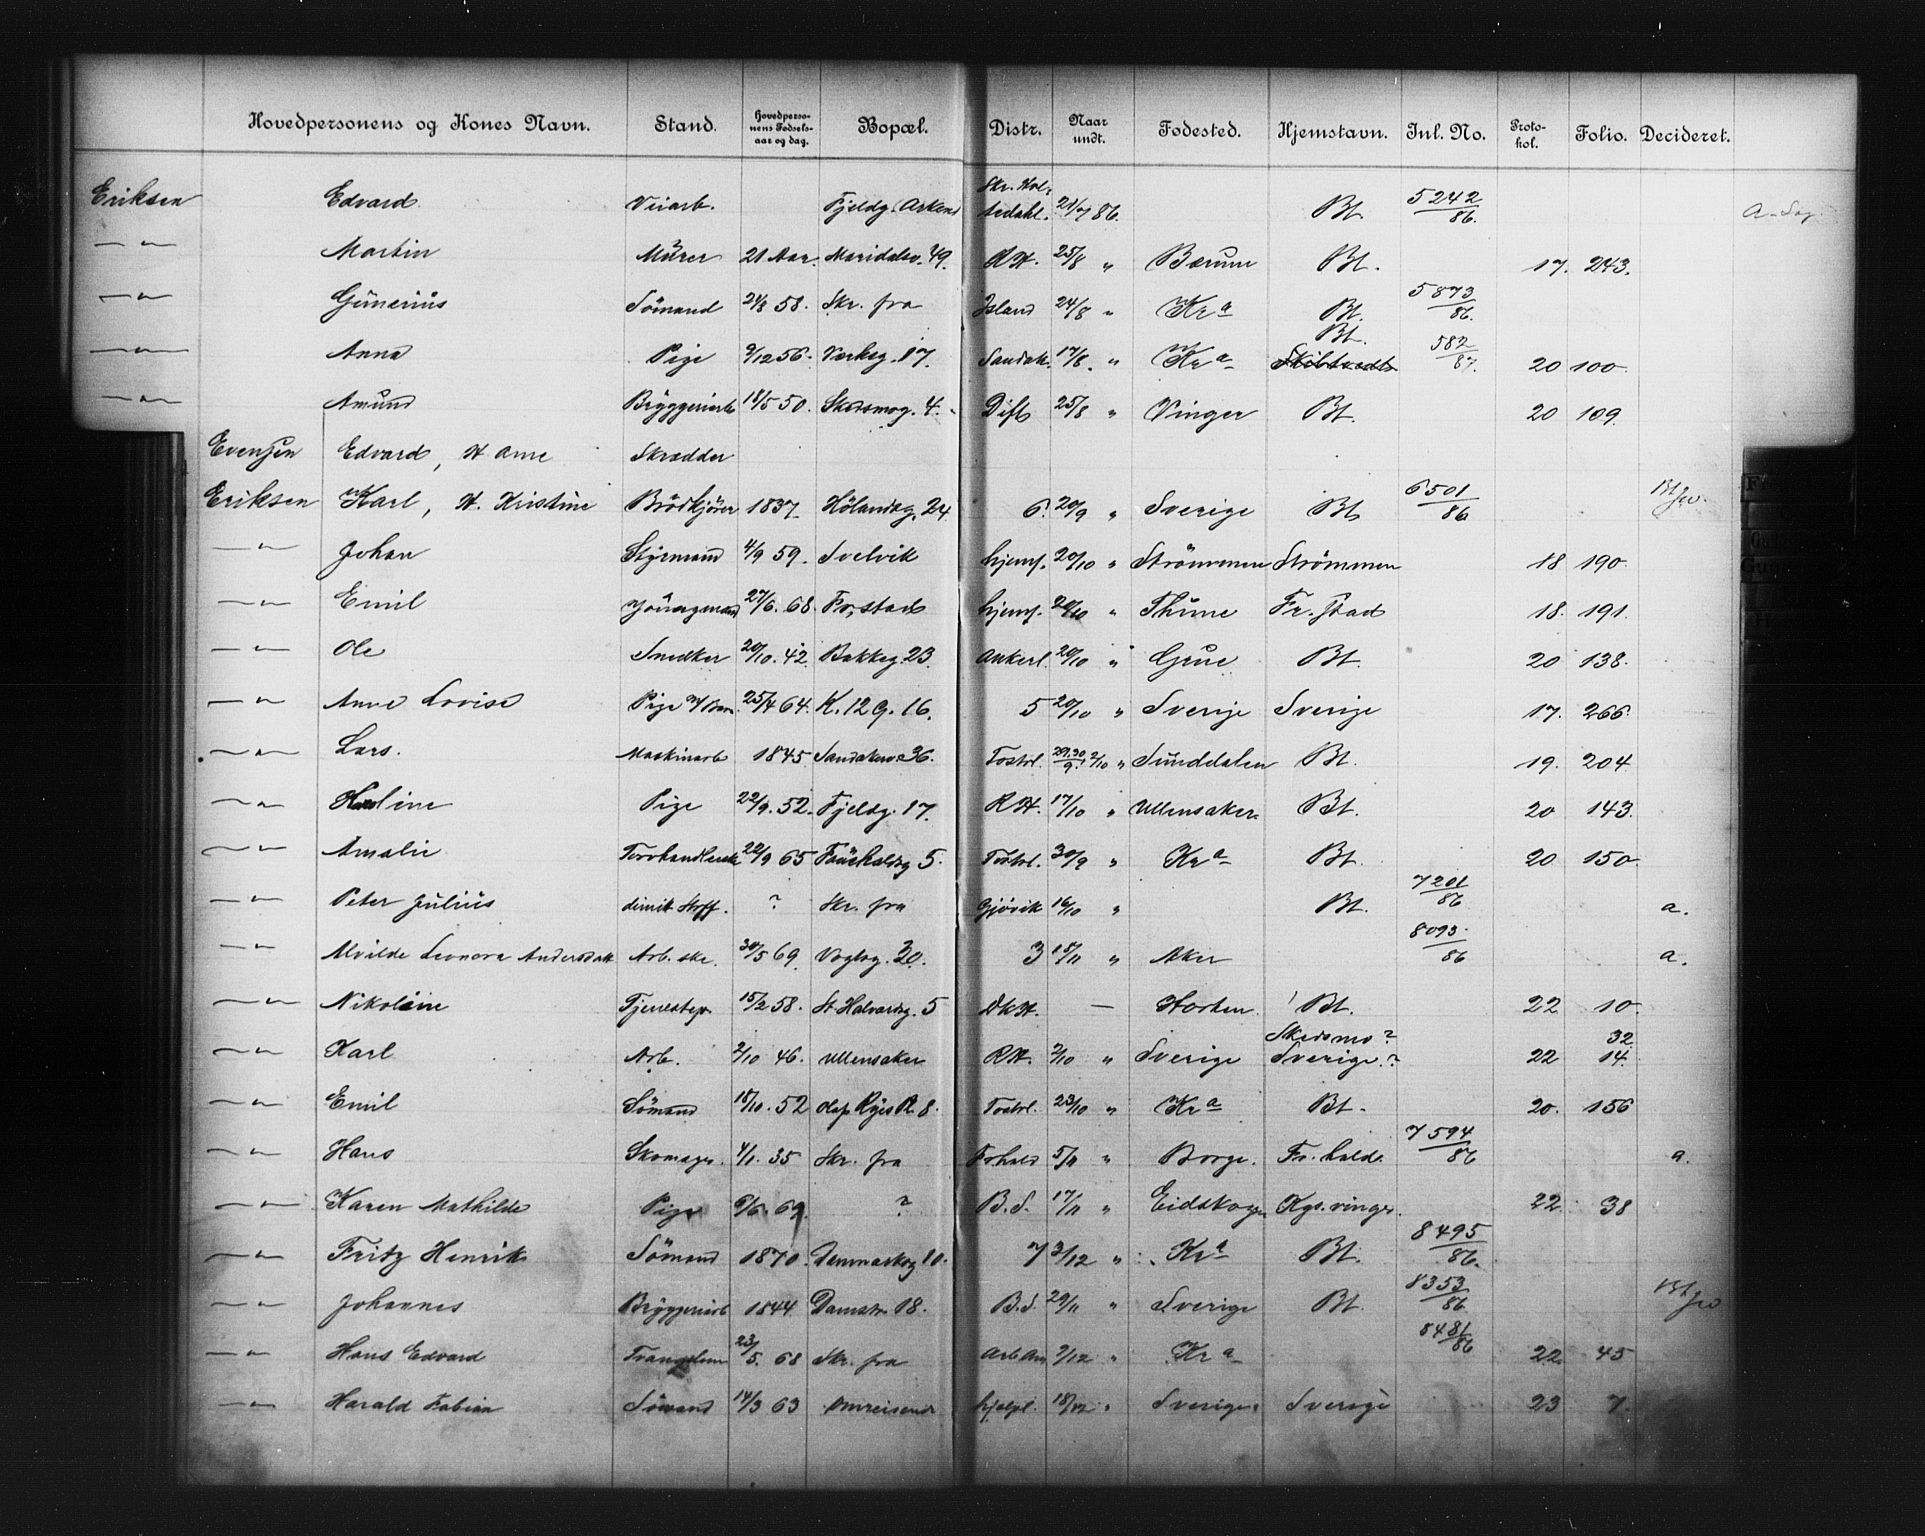 Hovedpersonens og Kones Navn. Stand. Hovedpersonens Fødselsaar og dag. Bopæl. Distr. Naar undt. Fødested. Hjemstavn. Inl. No. Protokol. Folio. Decideret.
Eriksen Edvard Veiarb. Fjeldg. 21/7 86. Bt. 5242/86.
—"— Martin Mürer 21 Aar. Maridalsv. 49. RH. 25/8 " Bærum Bt. 17. 243.
—"— Günerius Sömand 24/8 58. Skr. fra Island 24/8 " Kra Bt. 5873/86.
—"— Anna Pige 9/12 56. Værksg. 17. Sandak. 17/8. " Kra Bt. 582/87. 20 100.
—"— Amund Bryggeriarb 18/5 50. 4. Dift 25/8 " Vinger Bt. 20 109.
Evensen Edvard, H Anne Skrædder
Eriksen Karl, H. Kristine Brödkjörer 1837. Hölandsg. 24. 6. 20/9 " Sverige Bt 6501/86
—"— Johan Styrmand 4/9 59. Svelvik hjemf. 20/10 " Strömmen Strömmen 18 190.
—"— Emil 27/6. 68. Fr.stad hjemf. 20/10 " Thüne Fr.stad 18. 191.
—"— Ole Snedker 20/10. 42. Bakkeg. 23. Ankerl. 20/10 " Grue Bt. 20 138.
—"— Anne Lovise Pige m/Barn. 25/4 64. K. 12 g. 16. 5 20/10 " Sverige Sverige 17. 266.
—"— Lars. Maskinarb 1845 Sandakerv. 36. Tostrl. 29,30/9, 2/10 " Sunddalen Bt. 19. 204
—"— Pige 22/9. 52. Fjeldg. 17. RH. 17/10 " Ullensaker. Bt. 20 143.
—"— Amalie Torvhandlerske 22/9 65 5. Tostrl. 30/9 " Kra Bt. 20 150.
—"— Peter Julius dimit Straff. ? Skr. fra Gjövik 16/10 " Bt. 7201/86 a.
—"— Alvilde Leonora Andersdatt Arb. ske. 30/5 69. Vogtsg. 30. 3 15/11 " Aker 8093/86 a.
—"— Nikoline Tjenestep. 15/2 58. St. Halvardsg. 5 DKH. — Horten Bt. 22 10.
—"— Karl Arb. 2/10 46. Ullensaker RH. 2/10 " Sverige Skedsmo? Sverige? 22 32 14.
—"— Emil Sömand 18/10. 52 Olaf Ryes Pl. 8. Tostrl. 23/10 " Kra Bt. 20. 156
—"— Hans Skomager. 4/1. 35 Skr. fra Frhald 5/11 " Borge. Fr.hald. 7594/86 a.
—"— Karen Mathilde Pige 6/6. 69. ? B.S. 17/11 " Eidskogen Kgs.vinger. 22. 38
—"— Fritz Henrik Sömand 1870. Danmarksg 10. 7 3/12 " Kra Bt. 8495/86.
—"— Johannes Bryggeriarb 1844. Damstr. 18. B.S. 29/11 " Sverige Bt. 8353/86.
—"— Hans Edvard 23/5. 68 Skr. fra 9/12 " Kra 8481/86 22. 45
—"— Harald Fabian Sömand 14/3 63 omreisende hjelpl. 18/12 " Sverige. Sverige 23 7.